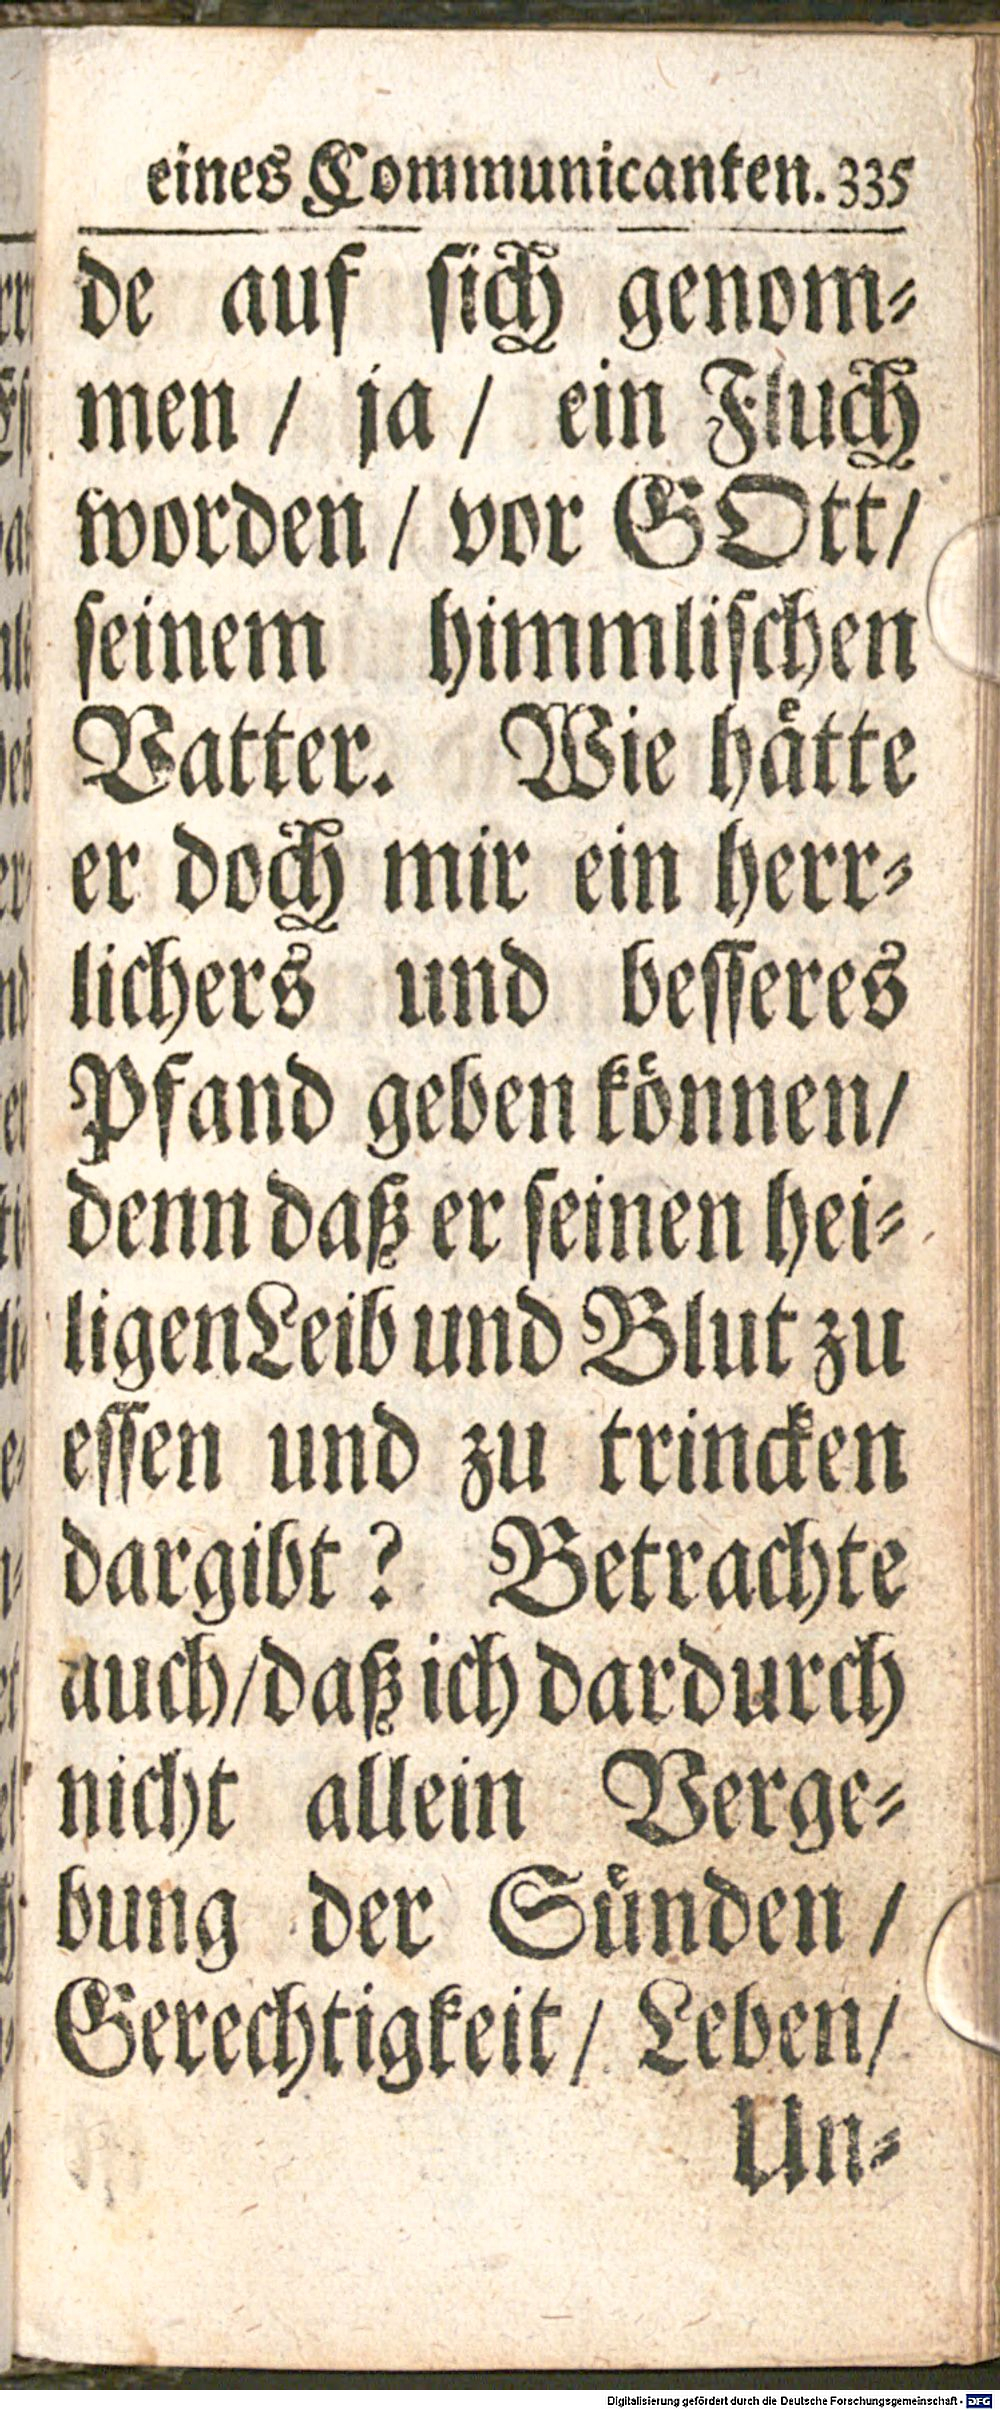 eines Communicanten. 335
de auf sich genom⸗
men / ja / ein Fluch
worden / vor GOtt /
seinem himmlischen
Vatter. Wie hätte
er doch mir ein herr⸗
lichers und besseres
Pfand geben können /
denn daß er seinen hei⸗
ligen Leib und Blut zu
essen und zu trincken
dargibt ? Betrachte
auch / daß ich dardurch
nicht allein Verge⸗
bung der Sünden /
Gerechtigkeit / Leben /
Un⸗
Digitalisierung gefördert durch die Deutsche Forschungsgemeinschaft - DFG